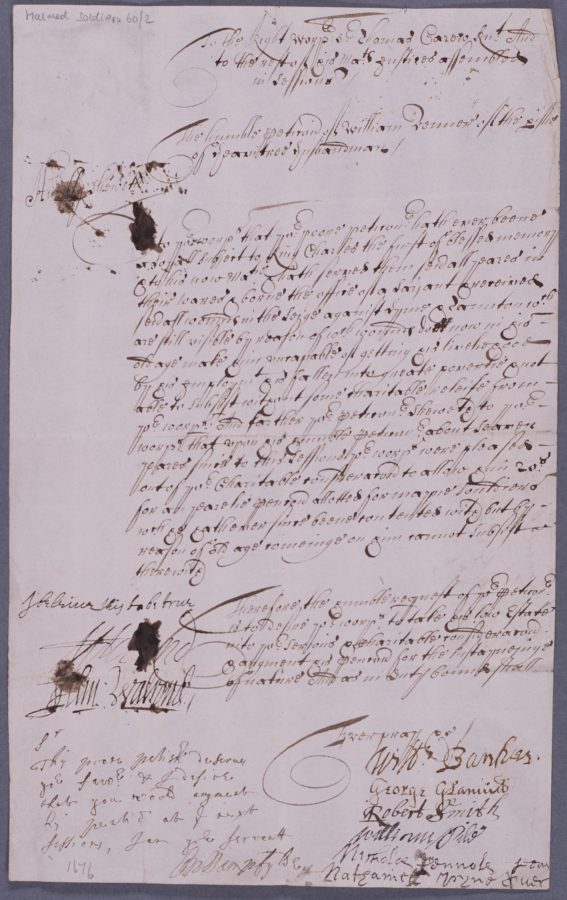 Maimed Soldiers 60/2
To the Right worp:ll Sr Thomas Carew Knt And
to the rest of his Ma:ts Justices assembled
in Sessions
The humble Petition of William Venner of the
of husbandman
Sheweth
yor worps that yor poore petitionr hath ever beene
a Loyall subject to King Charles the first of blessed memory
& to his now Matie & hath served them sevrall yeares in
their warrs & borne the office of a & received
sevrall wounds in the seige against Lyme & Taunton wch
are still visible by reason of wch wounds & now in his
old age make him uncapable of getting his livelihood
by his imploymt & is fallen into greate povertie & not
able to subsist without some charitable releife from
yor worps: And farther yor Petitionr sheweth to yor
worps that upon his humble Petition about seaven
yeares since to this Sessions yor worps were pleased
out of yor Charitable consideracon to allow him 20s
for a yearelie Pencon allotted for mayme souldiers
wch he hath ever since beene contented with but by
reason of old age comeinge on him cannot subsist
therewith
Therefore the humble request of yor Petitionr
is to desire yor worps to take his low Estate
into yor serious & charitable consideracon
& augment his Pencon for the sustayneinge
of nature And as in duty bound shall
Ever pray &c
John
Sr
This poore petitioner deserves
yor favor & I desire
that you would augment
his pention at ye next
sessions, I am yor servant
1676
Willm Bankes.
George Glanvill
Robert Smith
William Pile
Nicholas
Nathaniell